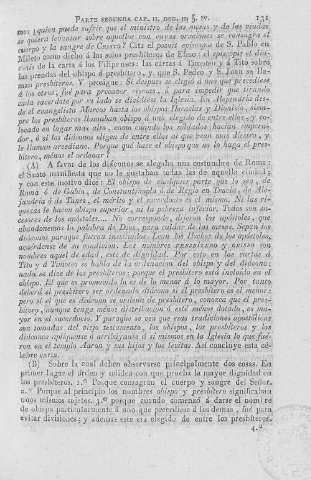 PARTE SEGUNDA CAP. II, DISS. III § IV. 131
mos: ¿quien puede sufrir que el ministro de las mesas y de las viudas
se quiera levantar sobre aquellos con cuyas oraciones se consagra el
cuerpo y la sangre de Cristo? Cita el pasage de S. Pablo en
Mileto como dicho á los solos presbíteros de Efeso: el episcopis et dia-
conis de la carta á los Filipenses: las cartas á Timoteo y á Tito sobre
las prendas del obispo ó presbítero, y que S. Pedro y S. Juan se lla-
man presbíteros. Y prosigue: Si despues se eligió á uno que precediese
á los otros, fué para precaver cismas, ó para impedir que tirando
cada sacerdote por su lado se dividiese la Iglesia. En Alejandría des-
de el evangelista Marcos hasta los obispos Heraclas y Dionisio, siem-
pre los presbíteros llamaban obispo á uno elegido de entre ellos, y co-
locado en lugar mas alto, como cuando los soldados hacian empera-
dor, ó si los diáconos eligen de entre ellos al que es mas diestro, y
le llaman arcediano. Porque ¿qué hace el obispo que no lo haga el pres-
bítero, ménos el ordenar?
(A) A favor de los diáconos se alegaba una costumbre de Roma;
el Santo manifiesta que no le gustaban todas las de aquella ciudad;
y con este motivo dice: El obispo de cualquiera parte que lo sea, de
Roma ó de Gubio, de Constantinopla ó de Regio en Tracia, de Ale-
jandría ó de Tunes, el mérito y el sacerdocio es el mismo. Ni las ri-
quezas le hacen obispo superior, ni la pobreza inferior. Todos son su-
cesores de los apóstoles.... No corresponde, dijeron los apóstoles, que
abandonemos la palabra de Dios, para cuidar de las mesas. Sepan los
diáconos porque fueron instituidos. Lean los Hechos de los apóstoles,
acuérdense de su condicion. Los nombres PRESBÍTERO y OBISPO son
nombres aquel de edad, este de dignidad. Por esto en las cartas á
Tito y á Timoteo se habla de la ordenacion del obispo y del diácono;
nada se dice de los presbíteros: porque el presbítero está incluido en el
obispo. El que es promovido lo es de lo menor á lo mayor. Por tanto
deberá el presbítero ser ordenado diácono si el presbítero es el menor;
pero si el que es diácono se ordena de presbítero, conozca que el pres-
bítero, aunque tenga ménos distribucion ó esté ménos dotado, es ma-
yor en el sacerdocio. Y para que se vea que estas tradiciones apostólicas
son tomadas del viejo testamento, los obispos, los presbíteros y los
diáconos aplíquense á sí mismos en la Iglesia lo que fué-
ron en el templo Aaron y sus hijos y los levitas. Así concluye esta cé-
lebre carta.
(B) Sobre la cual deben observarse principalmente dos cosas. En
primer lugar el órden y solidez con que prueba la mayor dignidad en
los presbíteros. 1.º Porque consagran el cuerpo y sangre del Señor.
2.º Porque al principio los nombres obispo y presbítero significaban
unos mismos sujetos. 3.º porque cuando comenzó á darse el nombre
de obispo particularmente á uno que presidiese á los demas, fué para
evitar divisiones; y ademas este era elegido de entre los presbíteros.
4.º